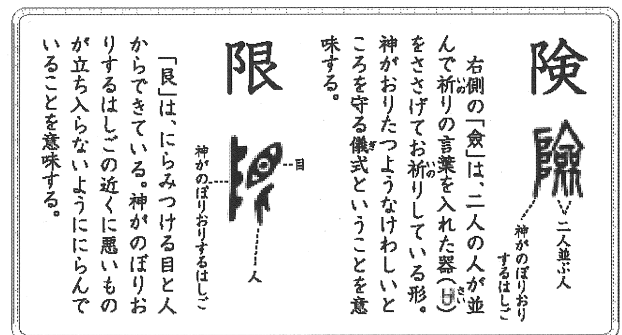 険
二人並ぶ人
神がのぼりおり
するはしご
右側の「㑒」は、二人の人が並
んで祈りの言葉を入れた器(𠙵)
をささげてお祈りしている形。
神がおりたつようなけわしいと
ころを守る儀式ということを意
味する。
限
目
人
神がのぼりおりするはしご
「艮」は、にらみつける目と人
からできている。神がのぼりお
りするはしごの近くに悪いもの
が立ち入らないようににらんで
いることを意味する。